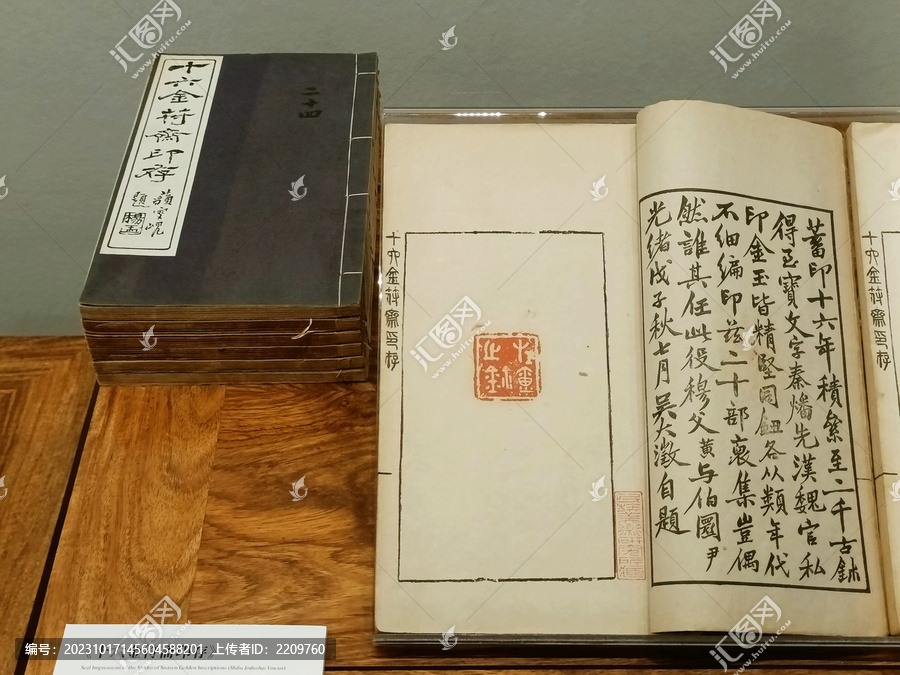 十六金符齋印存
二十四
題
十六金符齋印存
蓄印十六年積絫至二千古鉥
得至寶文字秦燔先漢魏官私
印金玉皆精堅同鈕各从類年代
不細編印茲二十部裒集豈偶
然誰其任此役穆父黃与伯圜尹
光緒戊子秋七月吳大澂自題
十六金符齋印存
Seal Impressions of the Studio of Sixteen Golden Inscriptions (Shiliu Jinfuzhai Yincun)
编号：20231017145604588201 上传者ID：2209760
汇图网
www.huitu.com